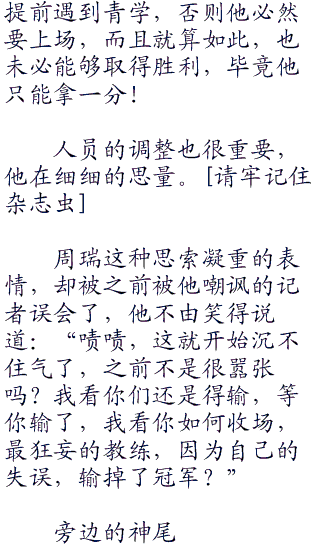 提前遇到青学，否则他必然
要上场，而且就算如此，也
未必能够取得胜利，毕竟他
只能拿一分！
人员的调整也很重要，
他在细细的思量。[请牢记住
杂志虫]
周瑞这种思索凝重的表
情，却被之前被他嘲讽的记
者误会了，他不由笑得说
道：“啧啧，这就开始沉不
住气了，之前不是很嚣张
吗？我看你们还是得输，等
你输了，我看你如何收场，
最狂妄的教练，因为自己的
失误，输掉了冠军？”
旁边的神尾